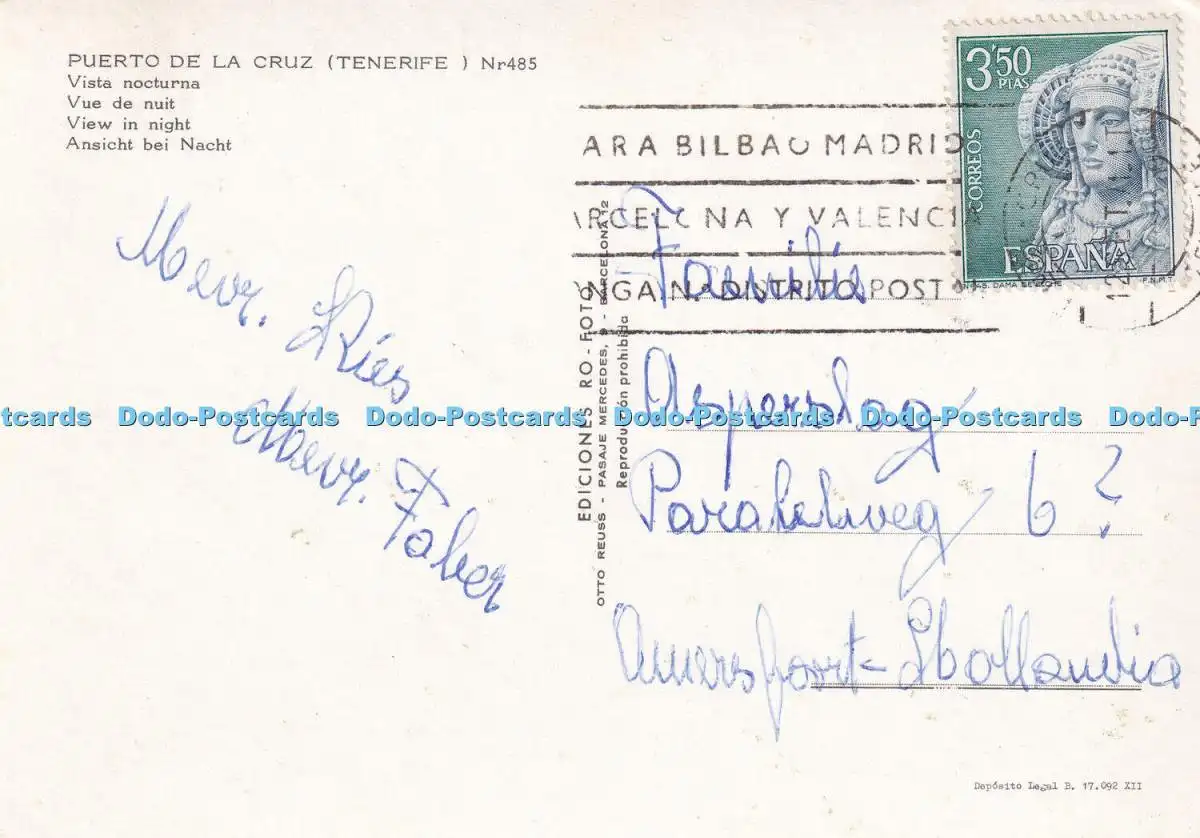 PUERTO DE LA CRUZ (TENERIFE ) Nr485
Vista nocturna
Vue de nuit
View in night
Ansicht bei Nacht
Mevr. Ries
Mevr. Faber
EDICIONES RO - FOTO
OTTO REUSS - PASAJE MERCEDES, 9 - BARCELONA 12
Reproducción prohibida
3'50
PTAS
CORREOS
ESPAÑA
DAMA DE ELCHE
F.N.M.T.
ARA BILBAO MADRID
ARCELONA Y VALENCIA
ONGA Nº DISTRITO POST
Familie
Asperslag
6?
Amersfoort - Hollandia
Dodo-Postcards Dodo-Postcards Dodo-Postcards Dodo-Postcards Dodo-Postcards
Depósito Legal B. 17.092 XII